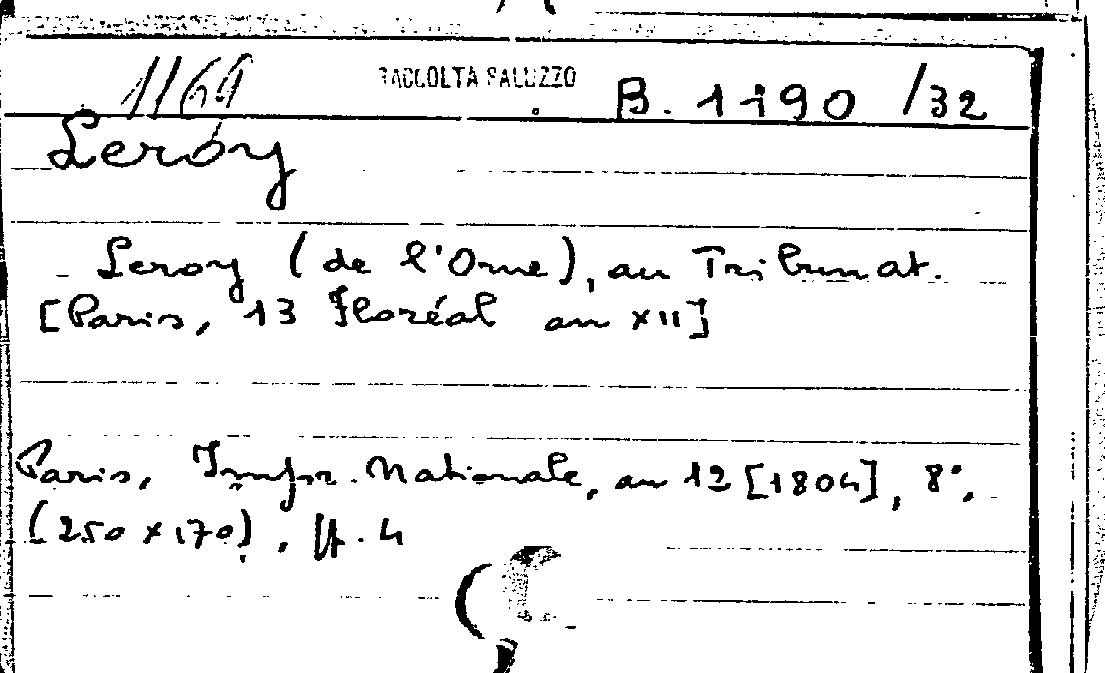 1169 RACCOLTA SALUZZO B. 1190 /32
Leroy
Leroy (de l'Orne), au Tribunat.
[Paris, 13 Floréal an XII]
Paris, Impr. Nationale, an 12 [1804], 8°,
(250 x 170), ff. 4